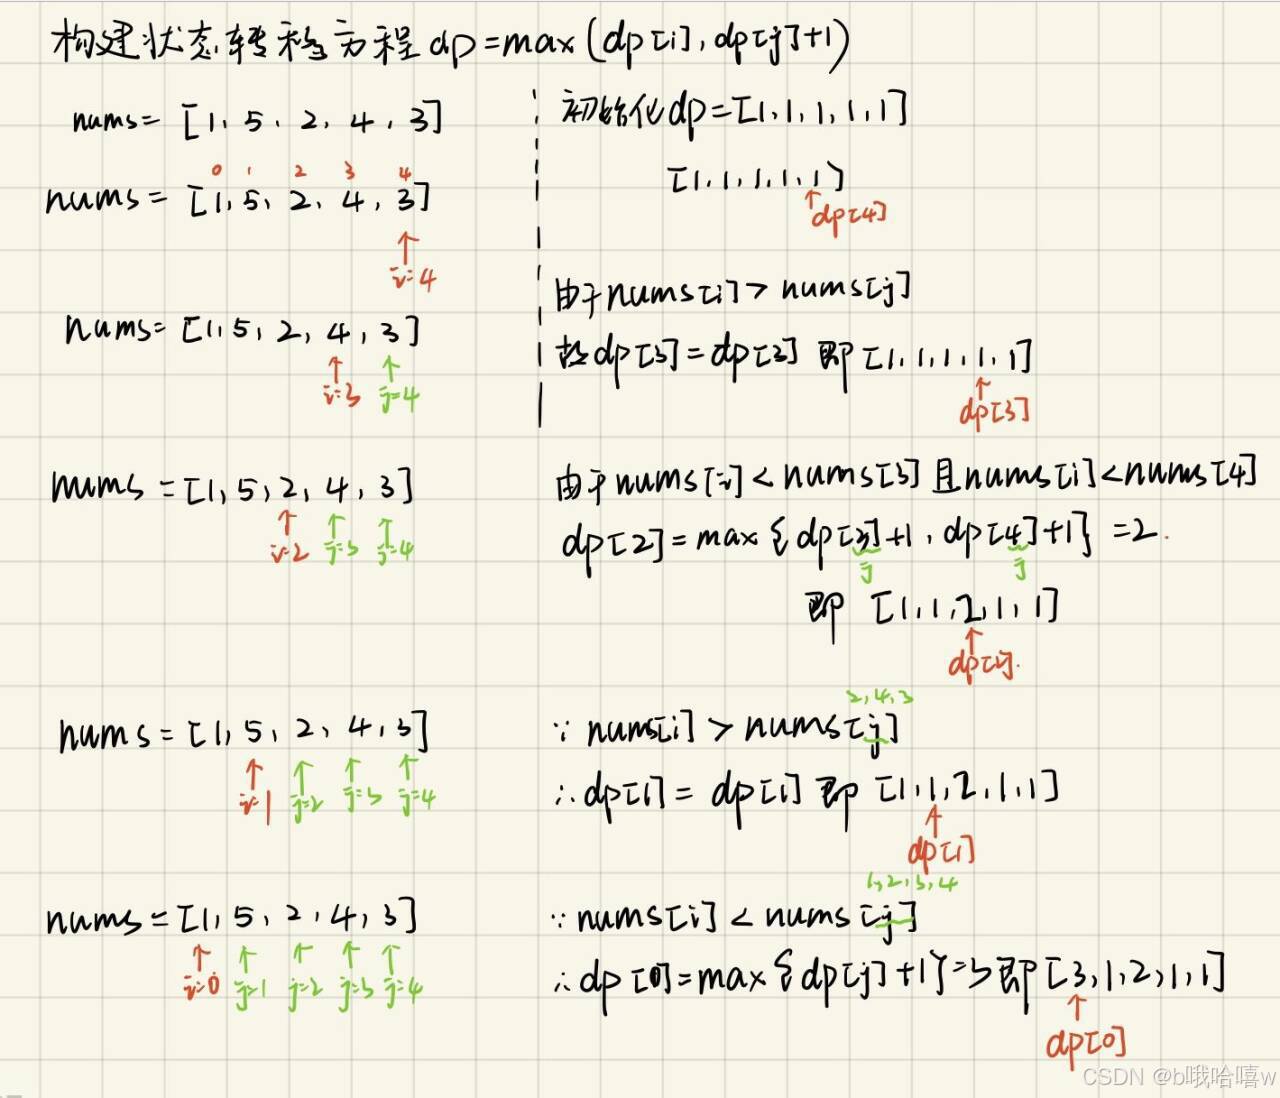 构建状态转移方程 dp=max(dp[i],dp[j]+1)
nums= [1, 5, 2, 4, 3]
初始化dp=[1,1,1,1,1]
0 1 2 3 4
nums= [1,5,2,4,3]
i=4
[1,1,1,1,1]
dp[4]
nums= [1,5,2,4,3]
i=3 j=4
由于nums[i]> nums[j]
故dp[3]=dp[3] 即[1,1,1,1,1]
dp[3]
nums =[1,5,2,4,3]
i=2 j=3 j=4
由于nums[i]<nums[3]且nums[i]<nums[4]
dp[2]=max{dp[3]+1,dp[4]+1} =2.
j j
即 [1,1,2,1,1]
dp[2].
nums =[1,5,2,4,3]
i=1 j=2 j=3 j=4
2,4,3
∵ nums[i] > nums[j]
∴dp[1]= dp[1] 即 [1,1,2,1,1]
dp[1]
nums =[1,5,2,4,3]
i=0 j=1 j=2 j=3 j=4
1,2,3,4
∵nums[i] < nums[j]
∴dp[0]=max{dp[j]+1}=3即[3,1,2,1,1]
dp[0]
CSDN @b哦哈嘻w